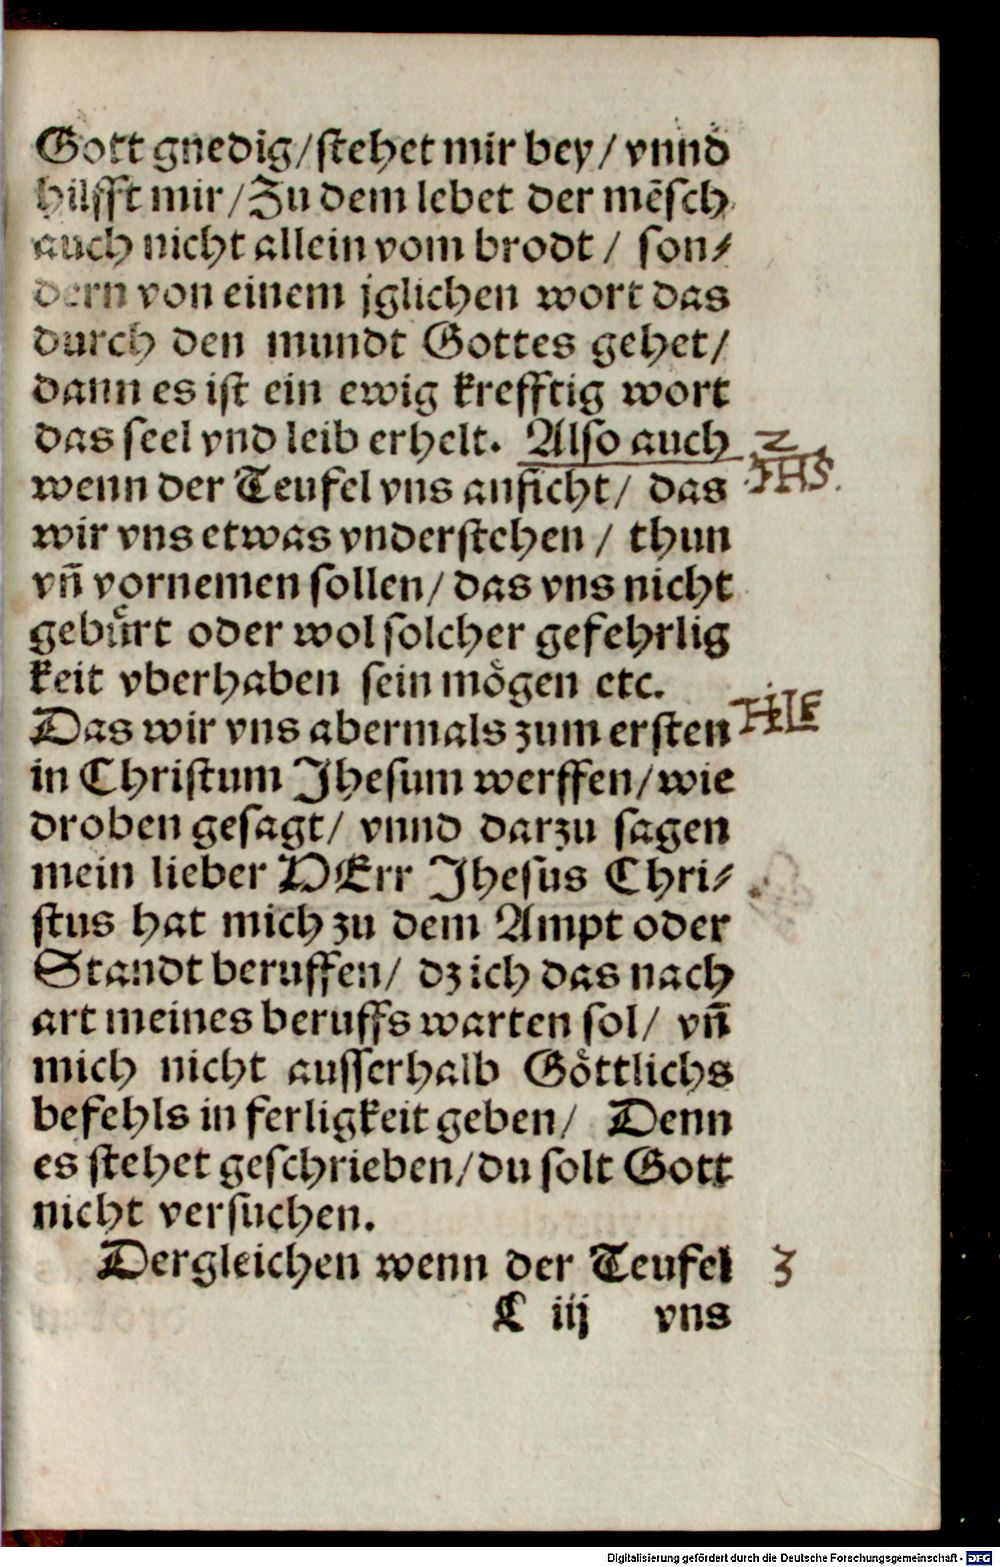 Gott gnedig/stehet mir bey/ vnnd
hilfft mir/Zu dem lebet der mẽsch
auch nicht allein vom brodt / son⸗
dern von einem jglichen wort das
durch den mundt Gottes gehet/
dann es ist ein ewig krefftig wort
das seel vnd leib erhelt. Also auch 2
wenn der Teufel vns anficht/ das JHS.
wir vns etwas vnderstehen / thun
vn̄ vornemen sollen/ das vns nicht
gebuͤrt oder wol solcher gefehrlig
keit vberhaben sein moͤgen etc.
Das wir vns abermals zum ersten
in Christum Jhesum werffen/wie
droben gesagt/ vnnd darzu sagen
mein lieber HErr Jhesus Chri⸗
stus hat mich zu dem Ampt oder
Standt beruffen/ dz ich das nach
art meines beruffs warten sol/ vn̄
mich nicht ausserhalb Goͤttlichs
befehls in ferligkeit geben/ Denn
es stehet geschrieben/du solt Gott
nicht versuchen.
Dergleichen wenn der Teufel 3
C iij vns
Digitalisierung gefördert durch die Deutsche Forschungsgemeinschaft - DFG